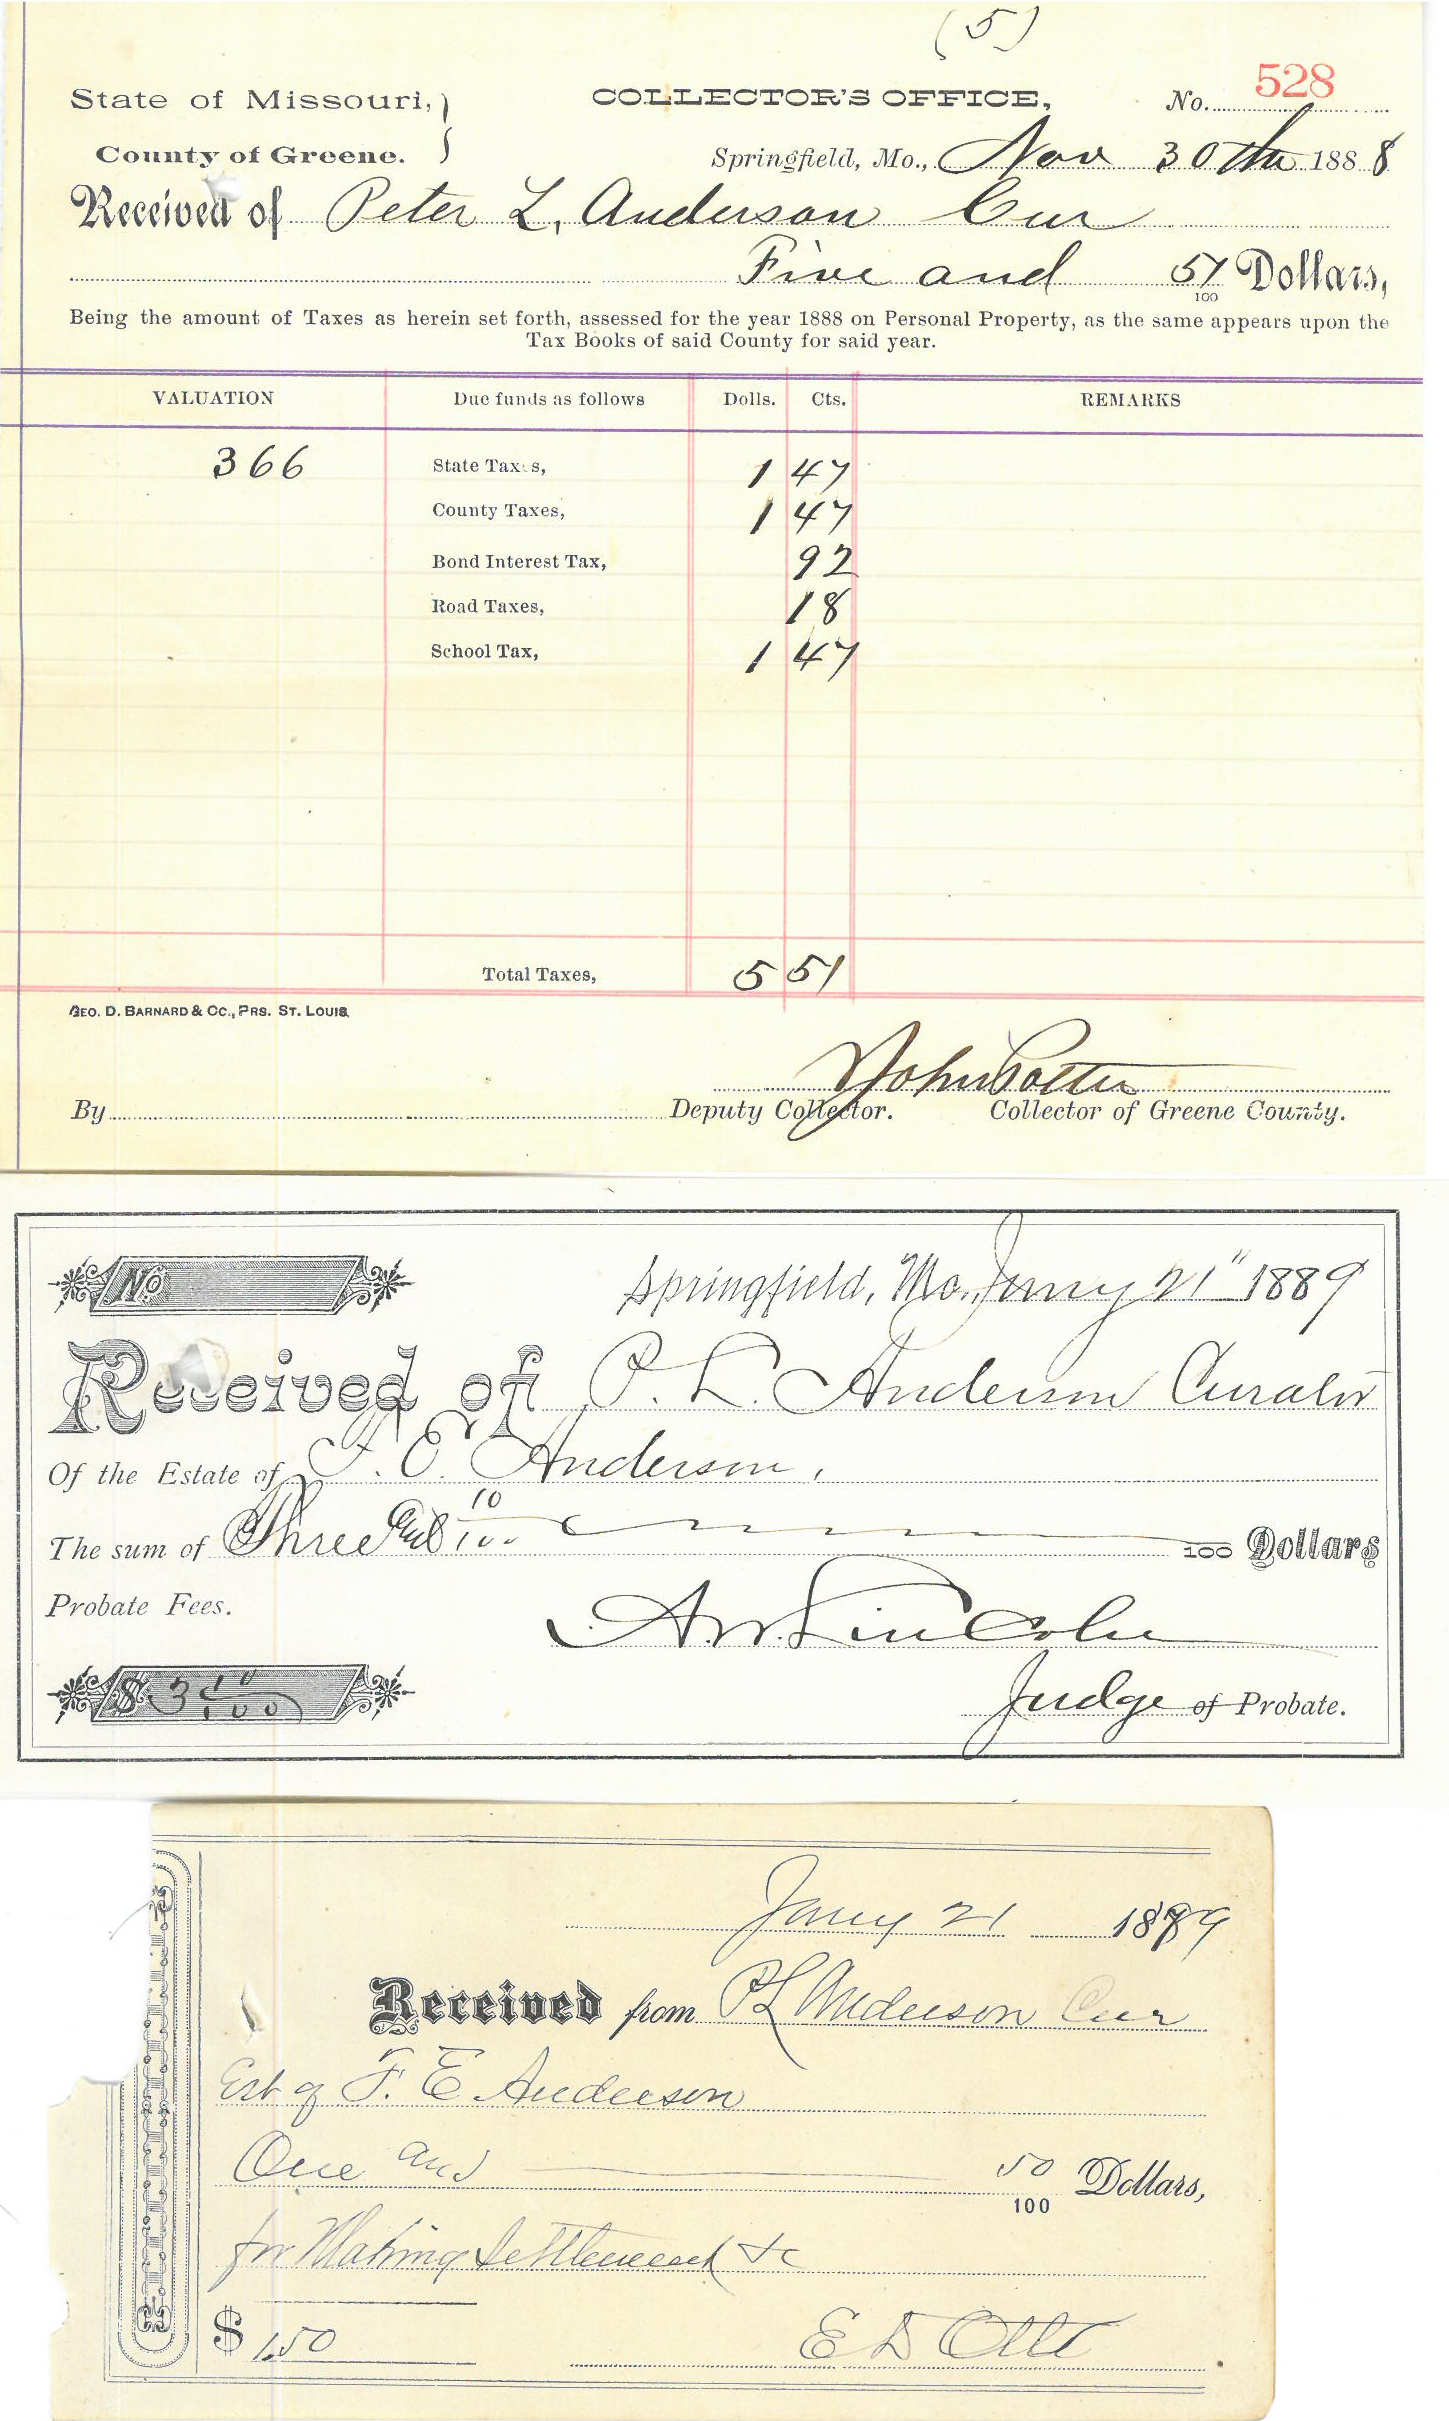 (5)
State of Missouri, COLLECTOR'S OFFICE, No. 528
County of Greene. Springfield, Mo., Nov 30th 1888
Received of Peter L. Anderson Cur
Five and 51/100 Dollars,
Being the amount of Taxes as herein set forth, assessed for the year 1888 on Personal Property, as the same appears upon the
Tax Books of said County for said year.
VALUATION Due funds as follows Dolls. Cts. REMARKS
366 State Taxes, 1 47
County Taxes, 1 47
Bond Interest Tax, 92
Road Taxes, 18
School Tax, 1 47
Total Taxes, 5 51
GEO. D. BARNARD & CO., PRS. ST. LOUIS.
John Potter
By Deputy Collector. Collector of Greene County.
No Springfield, Mo., Jany 21" 1889
Received of P. L. Anderson Curator
Of the Estate of F. E. Anderson,
The sum of Three and 10/100 100 Dollars
Probate Fees. A. W. Lincoln
$ 3 10/100 Judge of Probate.
Jany 21 1889
Received from P L Anderson Cur
Est of F. E. Anderson
One and 50/100 Dollars,
for Making Settlement &c
$ 1.50 E D Ott